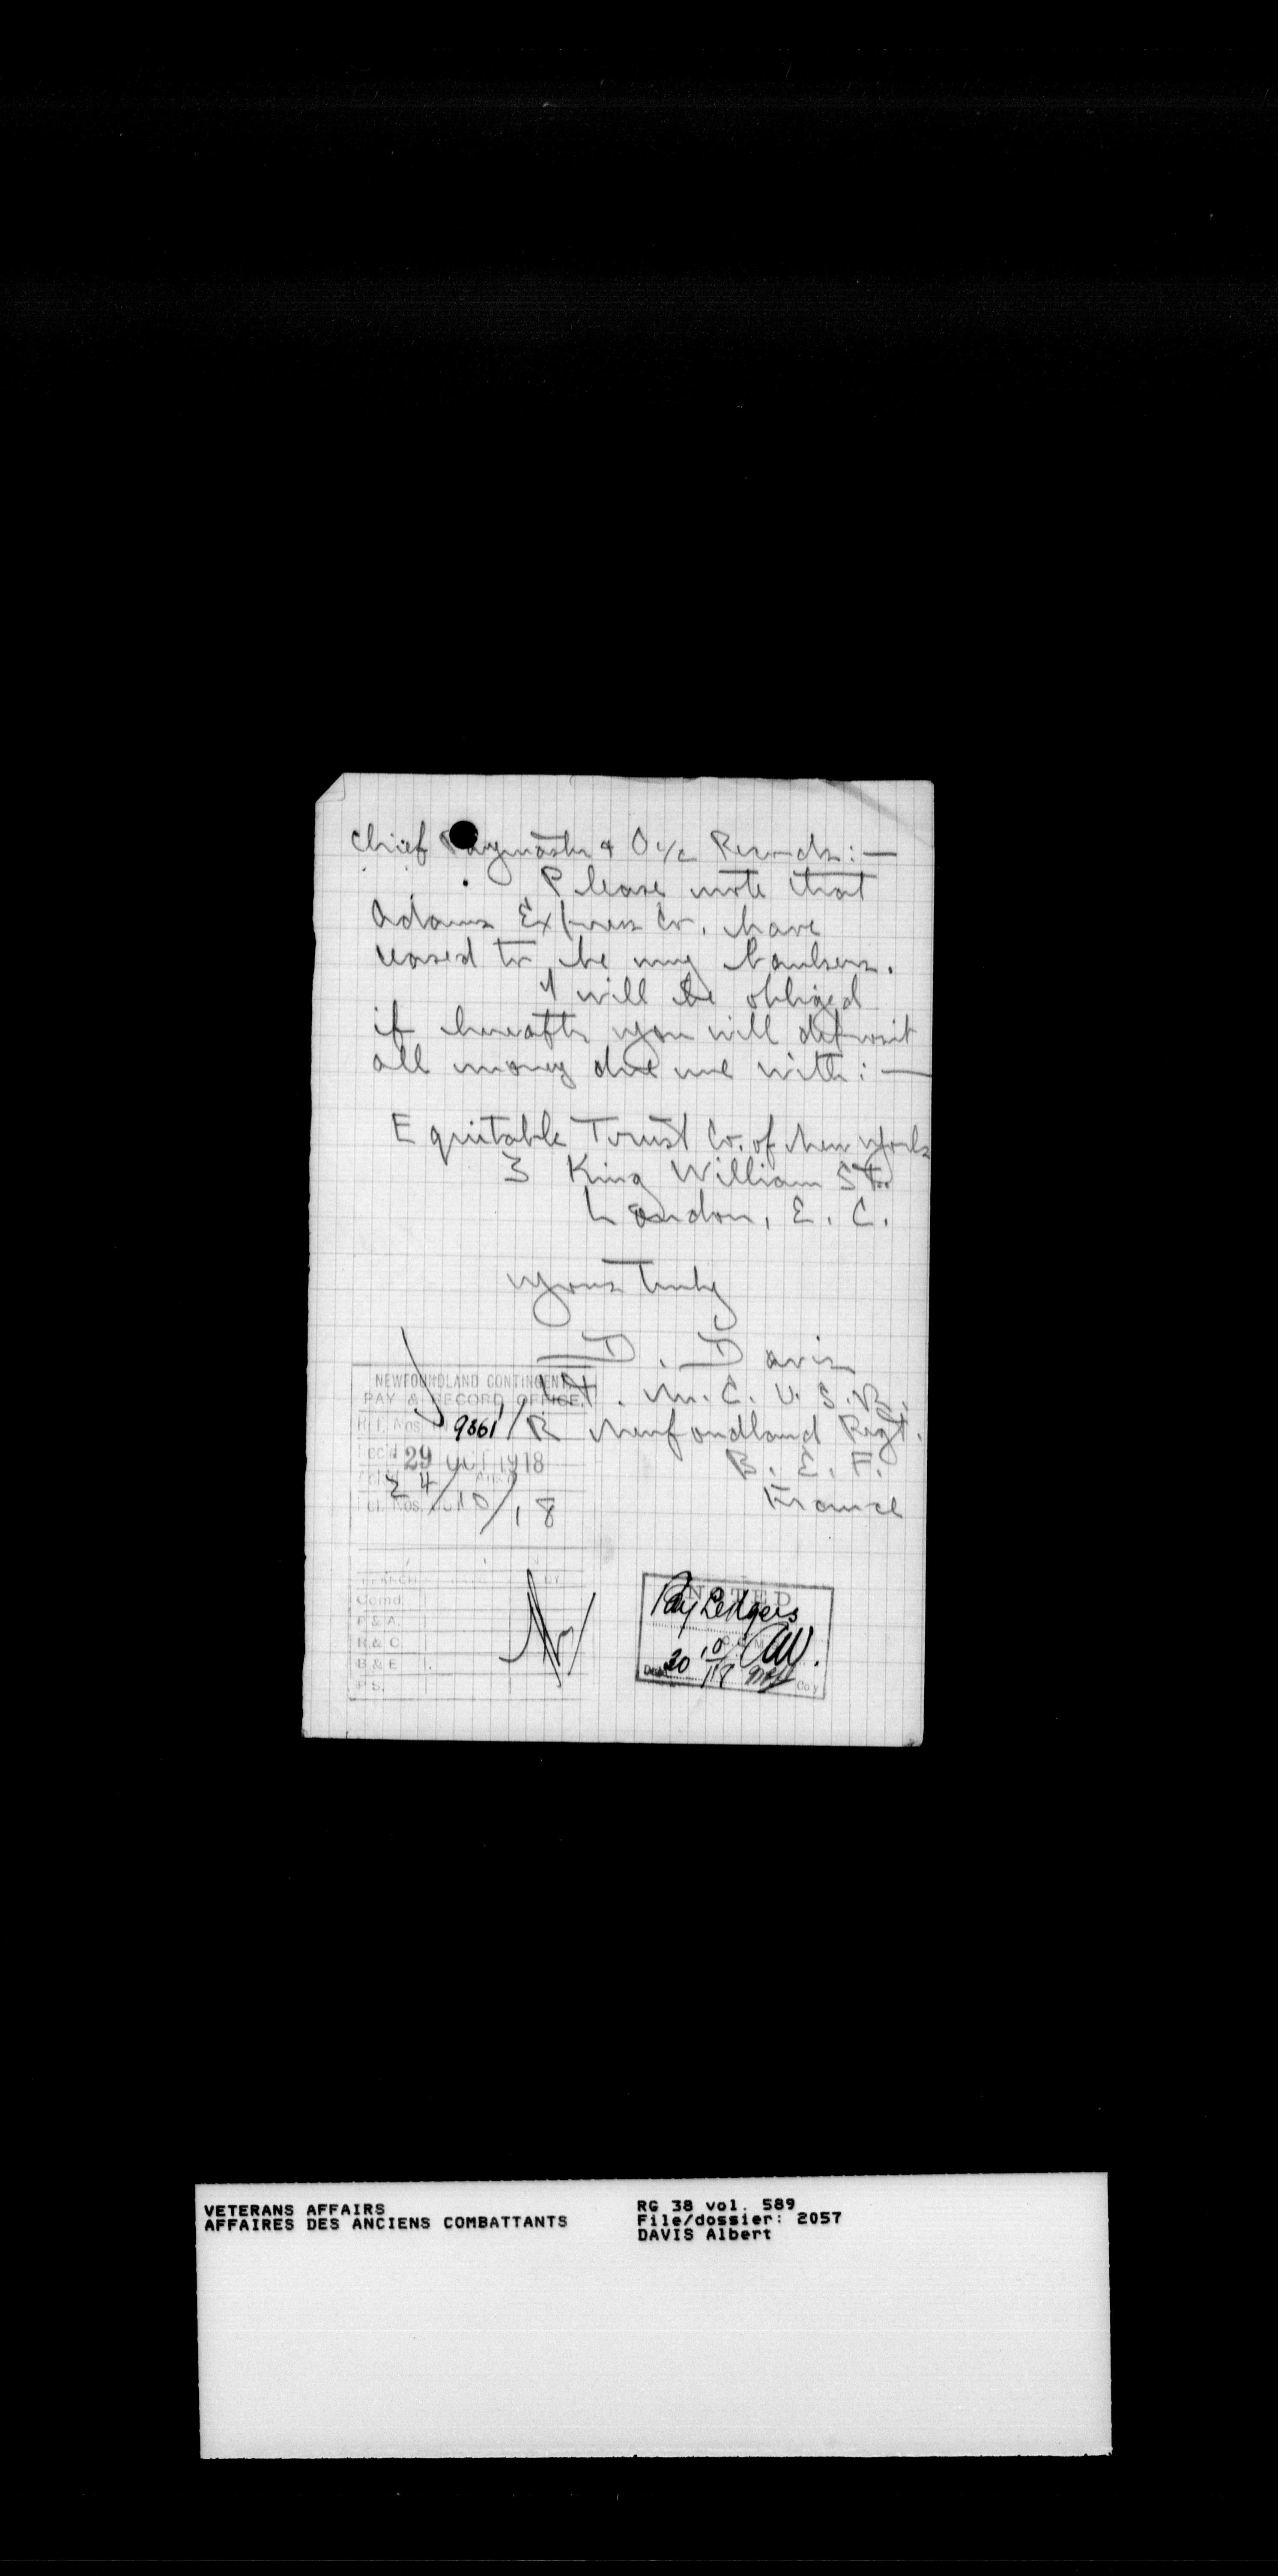 Chief Paymaster & O i/c Records: —
Please note that
Adams Express Co. have
ceased to be my bankers.
I will be obliged
if hereafter you will deposit
all money due me with: —
Equitable Trust Co. of New York
3 King William St.
London, E. C.
Yours truly
D. Davis
Lt. M. C. U. S. R.
R Newfoundland Regt.
B. E. F.
France
NEWFOUNDLAND CONTINGENT
PAY & RECORD OFFICE.
Ref. Nos. 9861
Rec'd 29 OCT 1918
24/10/18
BRANCH BY
Comd.
P & A.
R & C.
B & E.
P S.
NOTED
Pay Ledgers
Date 30 10/18 Coy
VETERANS AFFAIRS
AFFAIRES DES ANCIENS COMBATTANTS
RG 38 vol. 589
File/dossier: 2057
DAVIS Albert